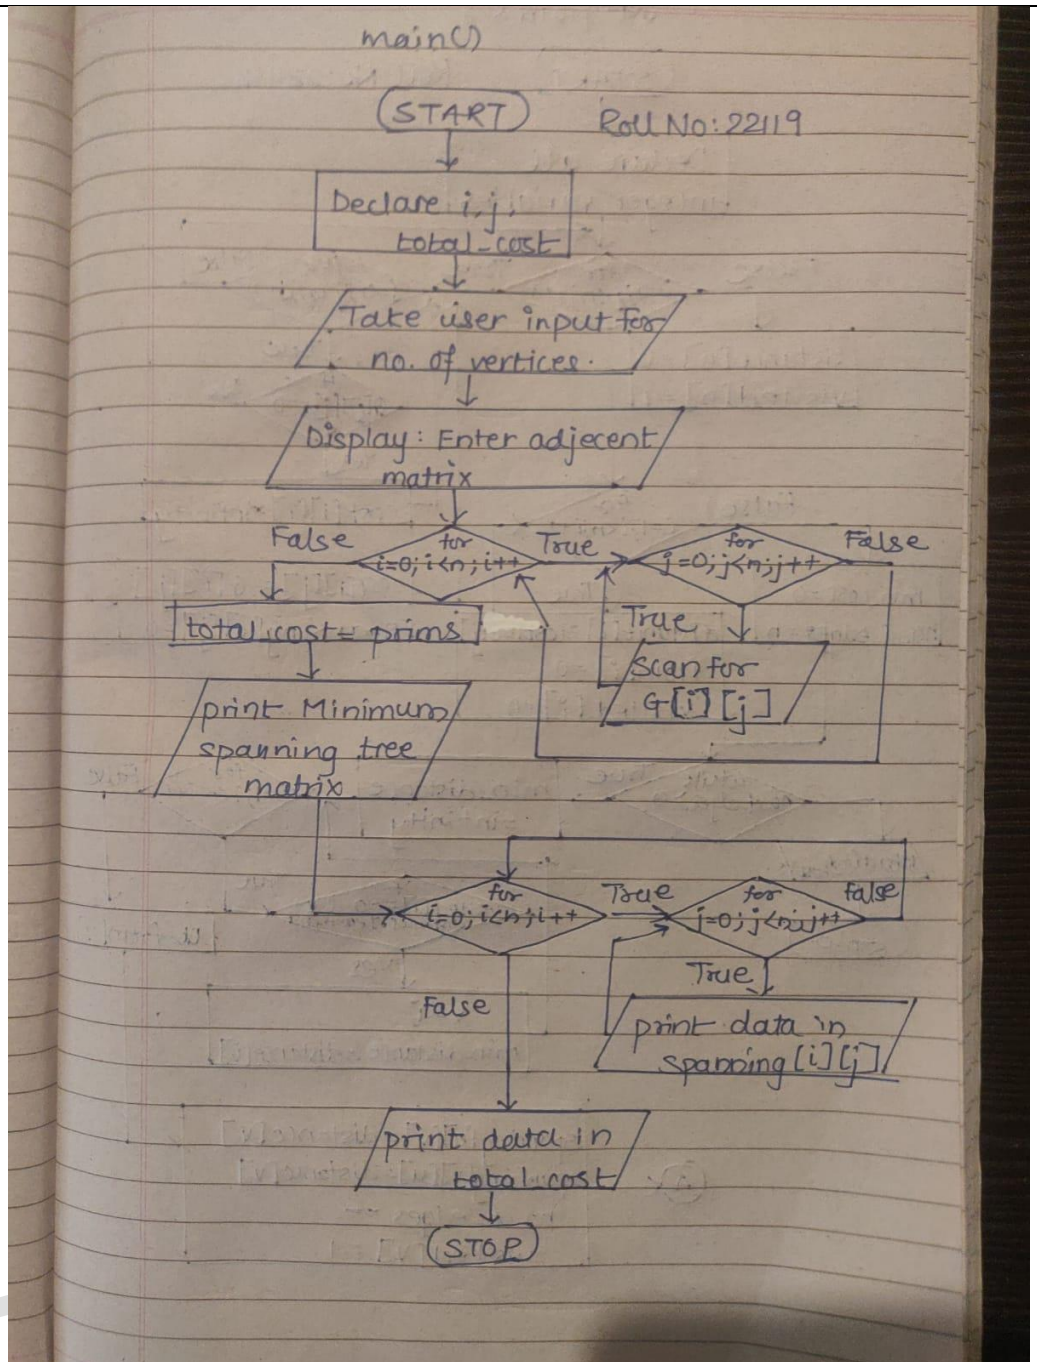 main()
START
Roll No: 22119
Declare i, j,
total_cost
Take user input for
no. of vertices.
Display: Enter adjecent
matrix
False
for
i=0; i<n; i++
True
for
j=0; j<n; j++
False
total_cost = prims
True
Scan for
G[i][j]
print Minimum
spanning tree
matrix
for
i=0; i<n; i++
True
for
j=0; j<n; j++
False
True
False
print data in
spanning[i][j]
print data in
total_cost
STOP